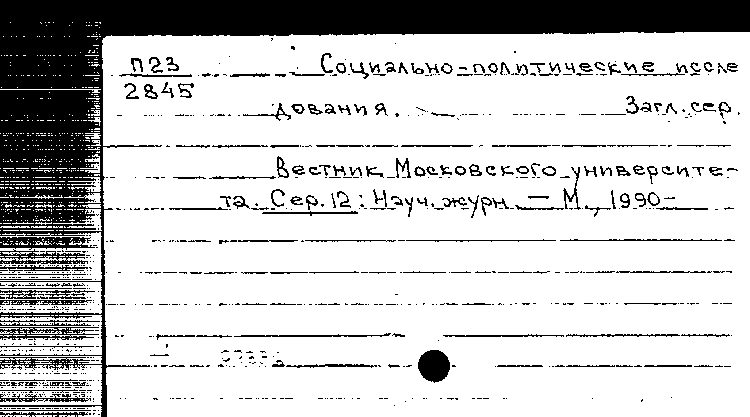 П23 Социально-политические иссле
2845
дования. Загл. сер.
Вестник Московского университе-
та. Сер. 12: Науч. журн. — М., 1990-